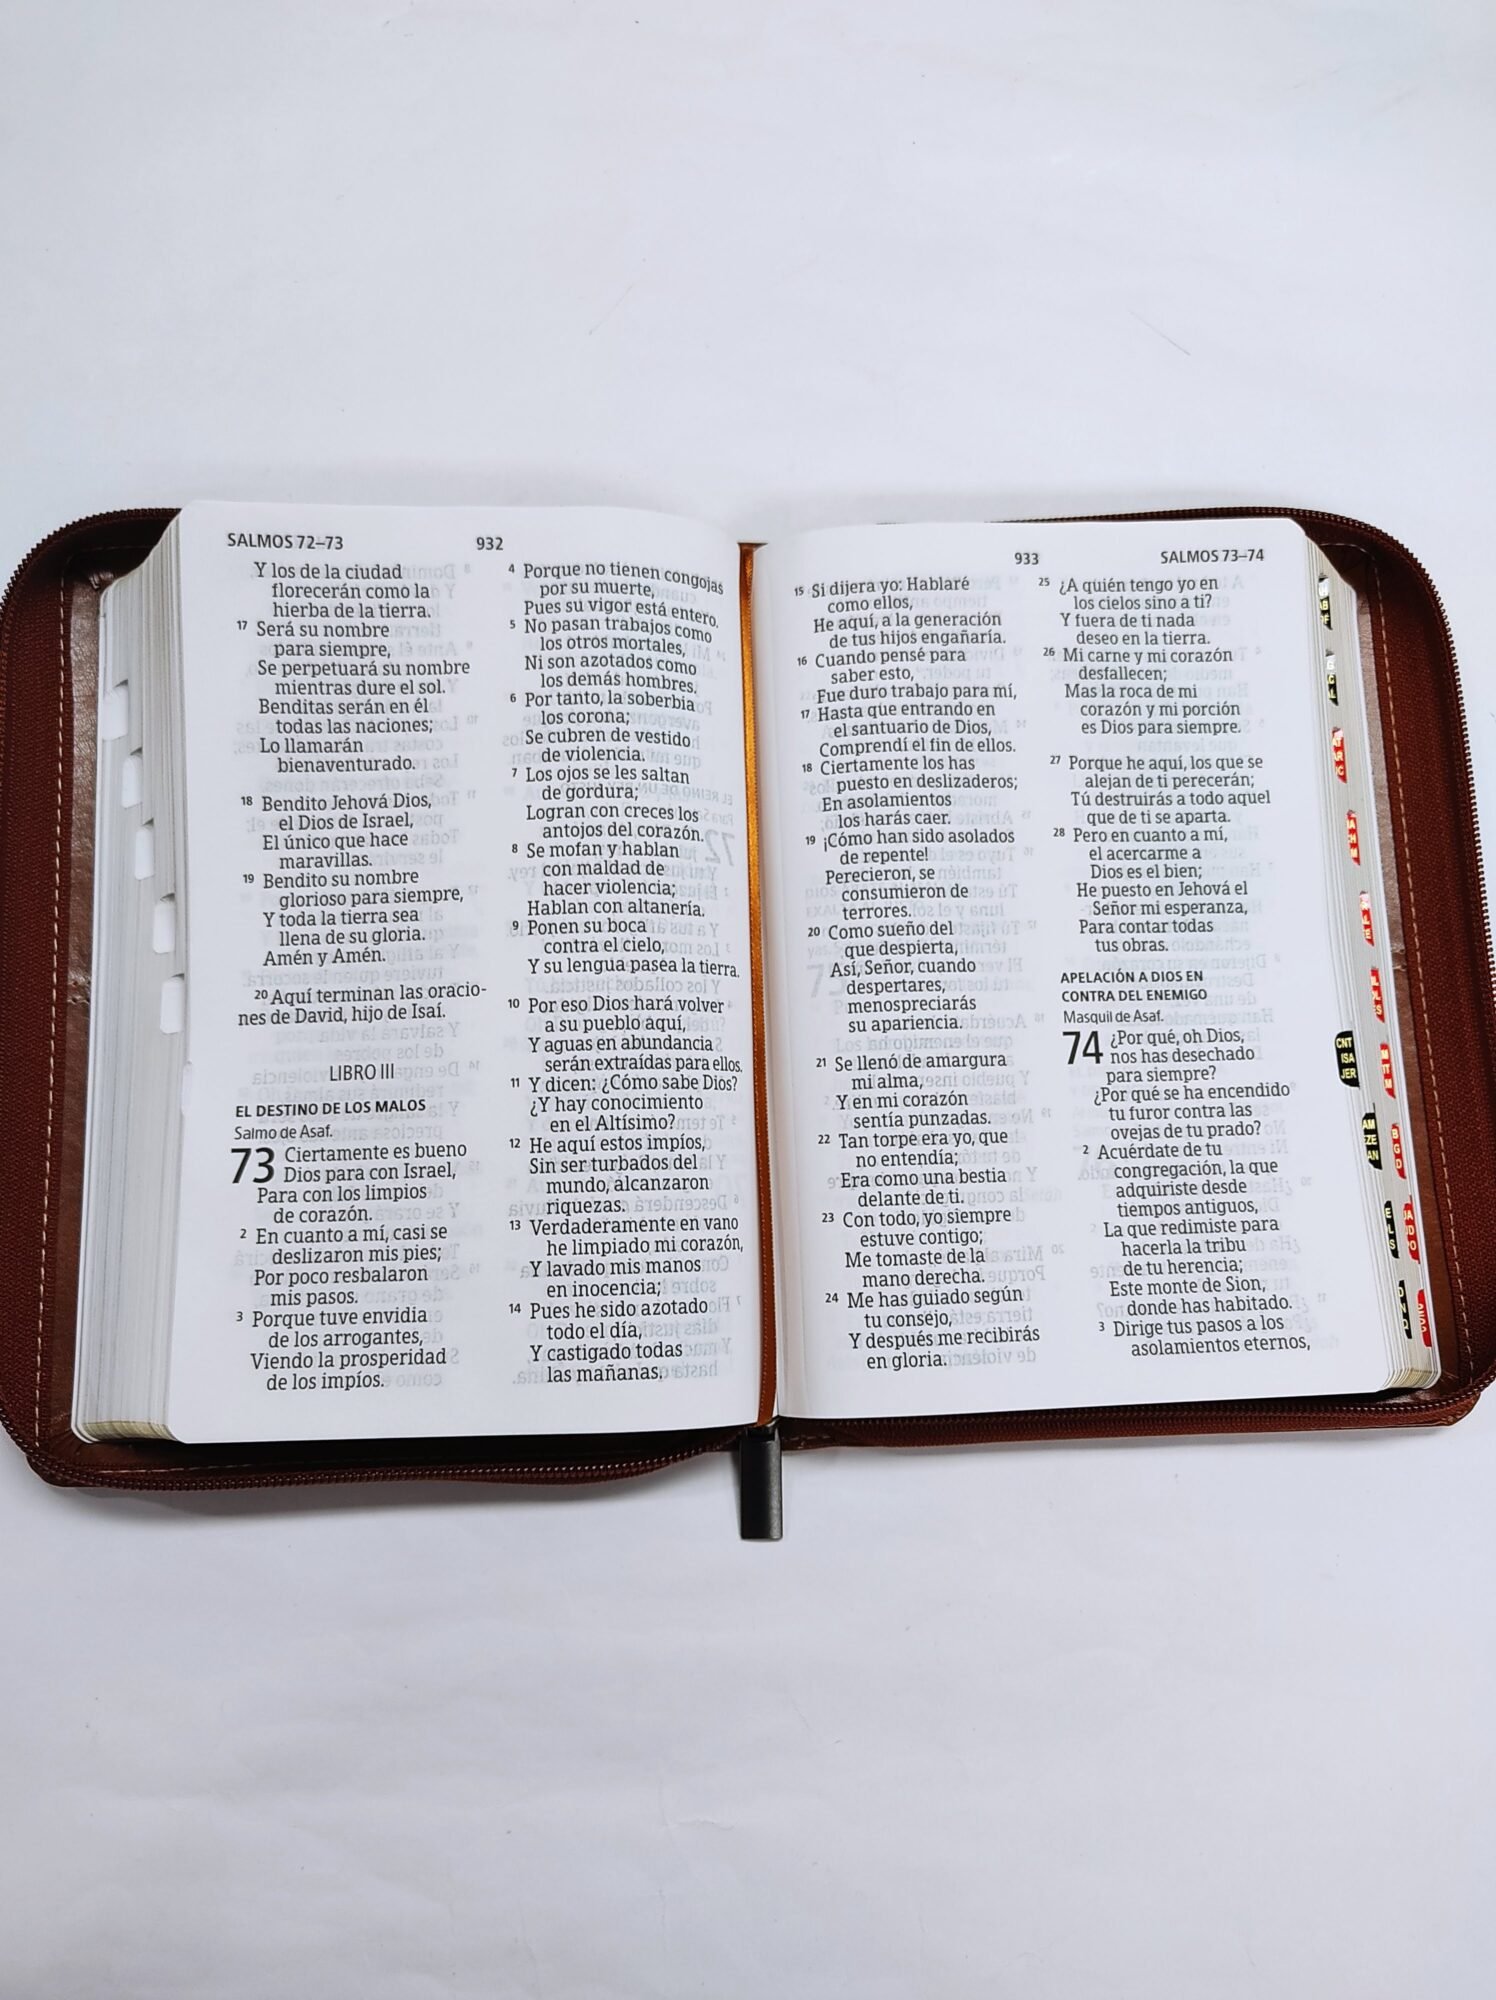 SALMOS 72–73
932
Y los de la ciudad
florecerán como la
hierba de la tierra.
17 Será su nombre
para siempre,
Se perpetuará su nombre
mientras dure el sol.
Benditas serán en él
todas las naciones;
Lo llamarán
bienaventurado.
18 Bendito Jehová Dios,
el Dios de Israel,
El único que hace
maravillas.
19 Bendito su nombre
glorioso para siempre,
Y toda la tierra sea
llena de su gloria.
Amén y Amén.
20 Aquí terminan las oracio-
nes de David, hijo de Isaí.
LIBRO III
EL DESTINO DE LOS MALOS
Salmo de Asaf.
73 Ciertamente es bueno
Dios para con Israel,
Para con los limpios
de corazón.
2 En cuanto a mí, casi se
deslizaron mis pies;
Por poco resbalaron
mis pasos.
3 Porque tuve envidia
de los arrogantes,
Viendo la prosperidad
de los impíos.
4 Porque no tienen congojas
por su muerte,
Pues su vigor está entero.
5 No pasan trabajos como
los otros mortales,
Ni son azotados como
los demás hombres.
6 Por tanto, la soberbia
los corona;
Se cubren de vestido
de violencia.
7 Los ojos se les saltan
de gordura;
Logran con creces los
antojos del corazón.
8 Se mofan y hablan
con maldad de
hacer violencia;
Hablan con altanería.
9 Ponen su boca
contra el cielo,
Y su lengua pasea la tierra.
10 Por eso Dios hará volver
a su pueblo aquí,
Y aguas en abundancia
serán extraídas para ellos.
11 Y dicen: ¿Cómo sabe Dios?
¿Y hay conocimiento
en el Altísimo?
12 He aquí estos impíos,
Sin ser turbados del
mundo, alcanzaron
riquezas.
13 Verdaderamente en vano
he limpiado mi corazón,
Y lavado mis manos
en inocencia;
14 Pues he sido azotado
todo el día,
Y castigado todas
las mañanas.
933
SALMOS 73–74
15 Si dijera yo: Hablaré
como ellos,
He aquí, a la generación
de tus hijos engañaría.
16 Cuando pensé para
saber esto,
Fue duro trabajo para mí,
17 Hasta que entrando en
el santuario de Dios,
Comprendí el fin de ellos.
18 Ciertamente los has
puesto en deslizaderos;
En asolamientos
los harás caer.
19 ¡Cómo han sido asolados
de repente!
Perecieron, se
consumieron de
terrores.
20 Como sueño del
que despierta,
Así, Señor, cuando
despertares,
menospreciarás
su apariencia.
21 Se llenó de amargura
mi alma,
Y en mi corazón
sentía punzadas.
22 Tan torpe era yo, que
no entendía;
Era como una bestia
delante de ti.
23 Con todo, yo siempre
estuve contigo;
Me tomaste de la
mano derecha.
24 Me has guiado según
tu consejo,
Y después me recibirás
en gloria.
25 ¿A quién tengo yo en
los cielos sino a ti?
Y fuera de ti nada
deseo en la tierra.
26 Mi carne y mi corazón
desfallecen;
Mas la roca de mi
corazón y mi porción
es Dios para siempre.
27 Porque he aquí, los que se
alejan de ti perecerán;
Tú destruirás a todo aquel
que de ti se aparta.
28 Pero en cuanto a mí,
el acercarme a
Dios es el bien;
He puesto en Jehová el
Señor mi esperanza,
Para contar todas
tus obras.
APELACIÓN A DIOS EN
CONTRA DEL ENEMIGO
Masquil de Asaf.
74 ¿Por qué, oh Dios,
nos has desechado
para siempre?
¿Por qué se ha encendido
tu furor contra las
ovejas de tu prado?
2 Acuérdate de tu
congregación, la que
adquiriste desde
tiempos antiguos,
La que redimiste para
hacerla la tribu
de tu herencia;
Este monte de Sion,
donde has habitado.
3 Dirige tus pasos a los
asolamientos eternos,
CNT
ISA
JER